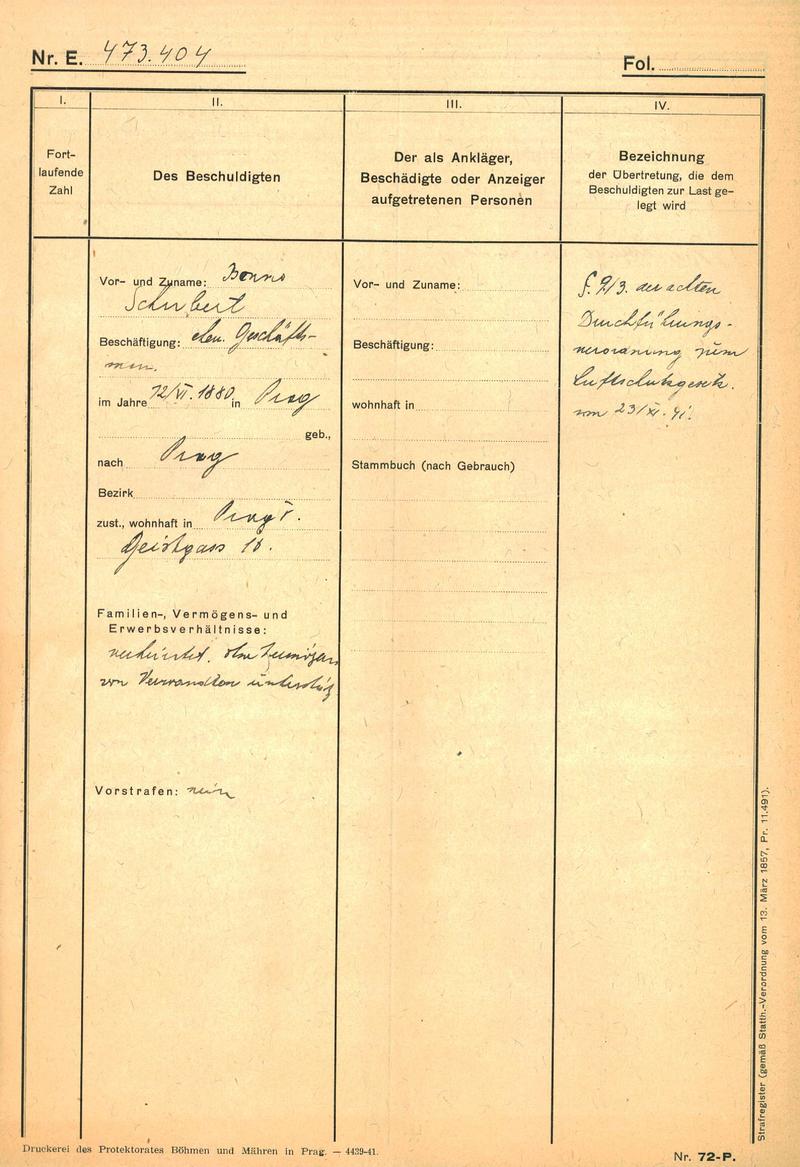 Nr. E. 473.404
Fol.
I.
Fort-
laufende
Zahl
II.
Des Beschuldigten
III.
Der als Ankläger,
Beschädigte oder Anzeiger
aufgetretenen Personen
IV.
Bezeichnung
der Übertretung, die dem
Beschuldigten zur Last ge-
legt wird
Vor- und Zuname:
Schubert
Beschäftigung: ehem. Geschäfts-
man.
im Jahre 12/VI. 1880 in Prag
geb.,
nach Prag
Bezirk
zust., wohnhaft in Prag V.
Geistgass 18.
Familien-, Vermögens- und
Erwerbsverhältnisse:
verheiratet. ohne Vermögen
von Verwandten unterstüz
Vorstrafen: nein
Vor- und Zuname:
Beschäftigung:
wohnhaft in
Stammbuch (nach Gebrauch)
§. 9/3. der achten
Durchführungs-
verordnung zum
Luftschutzgesetz.
vom 23/XI. 41.
Strafregister (gemäß Statth.-Verordnung vom 13. März 1857, Pr. 11.491).
Druckerei des Protektorates Böhmen und Mähren in Prag. — 4439-41.
Nr. 72-P.